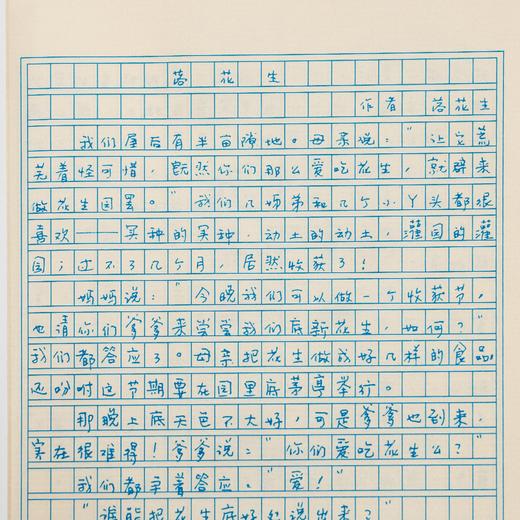 落花生
作者 落花生
我们屋后有半亩隙地。母亲说:"让它荒
芜着怪可惜,既然你们那么爱吃花生,就辟来
做花生园罢。"我们几姊弟和几个小丫头都很
喜欢——买种的买种,动土的动土,灌园的灌
园;过不了几个月,居然收获了!
妈妈说:"今晚我们可以做一个收获节,
也请你们爹爹来尝尝我们底新花生,如何?"
我们都答应了。母亲把花生做成好几样的食品,
还吩咐这节期要在园里底茅亭举行。
那晚上底天色不大好,可是爹爹也到来,
实在很难得!爹爹说:"你们爱吃花生么?"
我们都争着答应:"爱!"
"谁能把花生底好处说出来?"